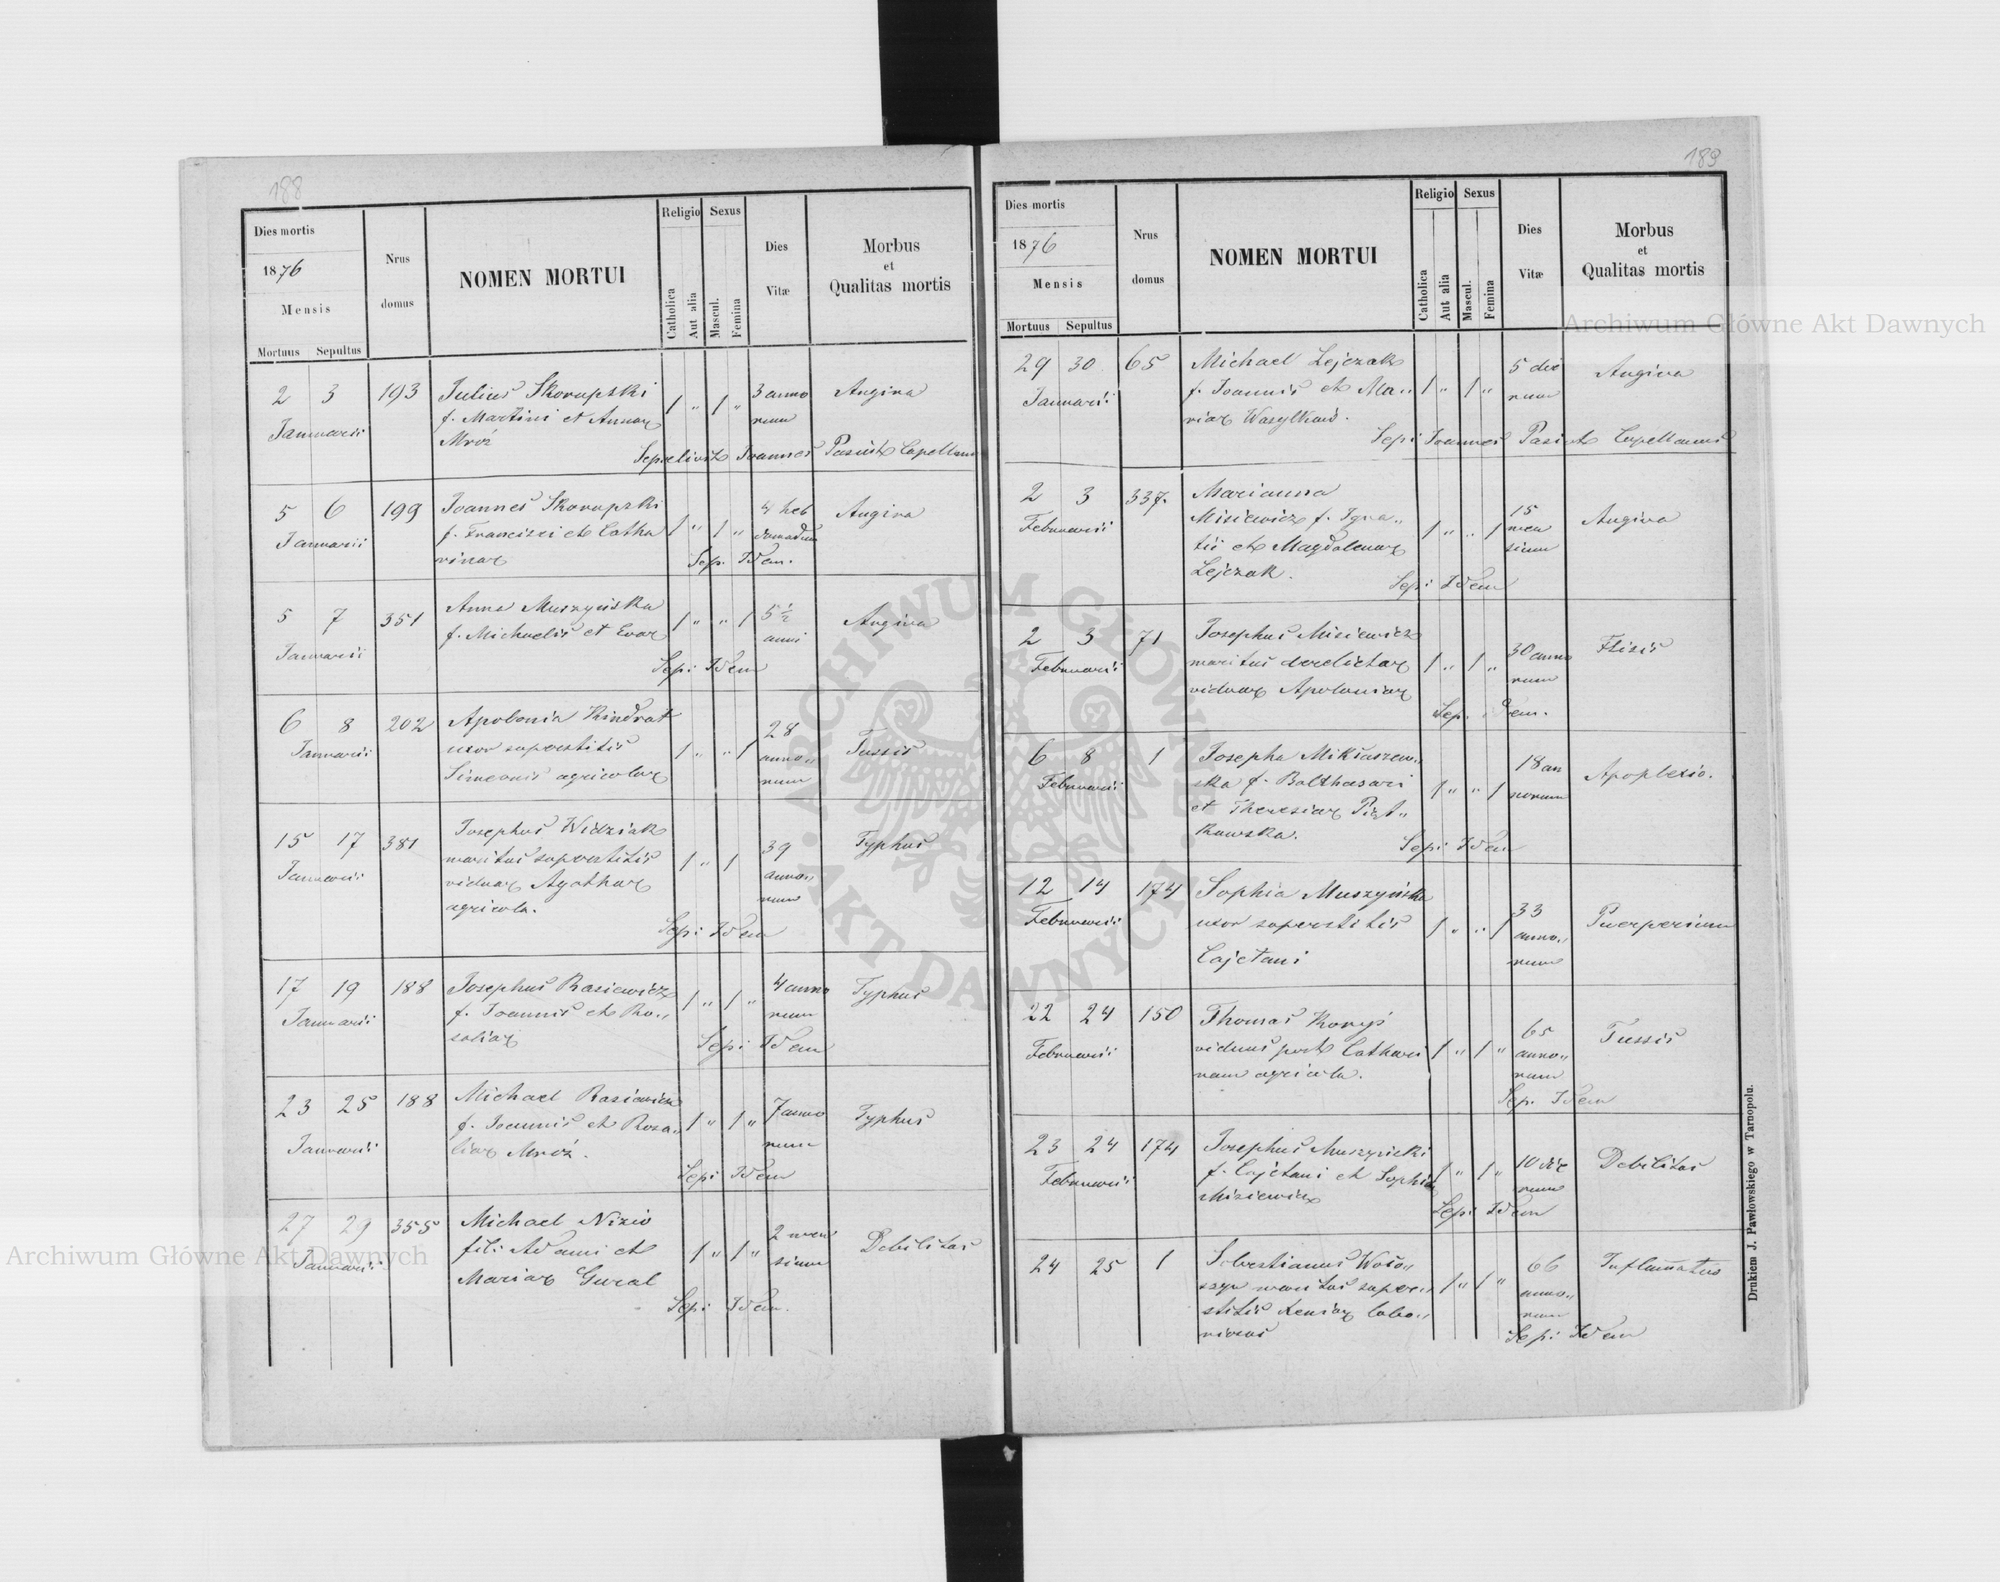 188
Dies mortis
1876
Mensis
Mortuus Sepultus
Nrus domus
NOMEN MORTUI
Religio
Catholica
Aut alia
Sexus
Mascul.
Femina
Dies Vitæ
Morbus
et
Qualitas mortis
2 3 193 Julius Skorupski 1 " 1 " 3 anno Angina
Januarii f. Martini et Annae rum
Mróz
Sepelivit Joannes Pasiut Capellanus
5 6 199 Joannes Skorupski 1 " 1 " 4 heb Angina
Januarii f. Francisci et Catha domadum
rinae Sep. Idem.
5 7 351 Anna Muszyńska 1 " " 1 5 1/2 Angina
Januarii f. Michaelis et Evae anni
Sepi Idem
6 8 202 Apolonia Kindrat 1 " " 1 28 Tussis
Januarii uxor superstitis anno"
Simeonis agricolae rum
15 17 381 Josephus Widziak 1 " 1 39 Typhus
Januarii maritus superstitis anno"
viduae Agathae rum
agricola.
Sepi Idem
17 19 188 Josephus Rasiewicz 1 " 1 " 4 anno Typhus
Januarii f. Joannis et Ro" rum
saliae Sepi Idem
23 25 188 Michael Rasiewicz 1 " 1 " 7 anno Typhus
Januarii f. Joannis et Rosa" rum
liae Mróz.
Sepi Idem
27 29 355 Michael Nizio 1 " 1 " 2 men Debilitas
Januarii fil: Adami et sium
Mariae Gural
Sepi Idem.
189
Dies mortis
1876
Mensis
Mortuus Sepultus
Nrus domus
NOMEN MORTUI
Religio
Catholica
Aut alia
Sexus
Mascul.
Femina
Dies Vitæ
Morbus
et
Qualitas mortis
29 30 65 Michael Lejczak 1 " 1 " 5 die Angina
Januarii f. Joannis et Ma" rum
riae Wasylków.
Sepi Joannes Pasiut Capellanus
2 3 337. Marianna 1 " " 1 15 Angina
Februarii Misiewicz f. Igna" men
tii et Magdalenae sium
Lejczak.
Sepi Idem
2 3 71 Josephus Misiewicz 1 " 1 " 30 anno Ftisis
Februarii maritus derelictae rum
viduae Apoloniae
Sep. Idem.
6 8 1 Josepha Mikłaszew" 1 " " 1 18 an Apoplexio.
Februarii ska f. Balthasari norum
et Theresiae Piąt"
kowska.
Sepi Idem
12 14 174 Sophia Muszyńska 1 " " 1 33 Puerperium
Februarii uxor superstitis anno"
Cajetani rum
22 24 150 Thomas Koryś 1 " 1 " 65 Tussis
Februarii viduus post Cathari anno"
nam agricola. rum
Sep. Idem
23 24 174 Josephus Muszyński 1 " 1 " 10 die Debilitas
Februarii f. Cajetani et Sophiae rum
Misiewicz
Sepi Idem
24 25 1 Sebastianus Woło" 1 " 1 " 66 Inflamatus
szyn maritus super" anno"
stitis Xeniae labo" rum
riosus
Sepi Idem
Drukiem J. Pawłowskiego w Tarnopolu.
Archiwum Główne Akt Dawnych
Archiwum Główne Akt Dawnych
ARCHIWUM GŁÓWNE AKT DAWNYCH